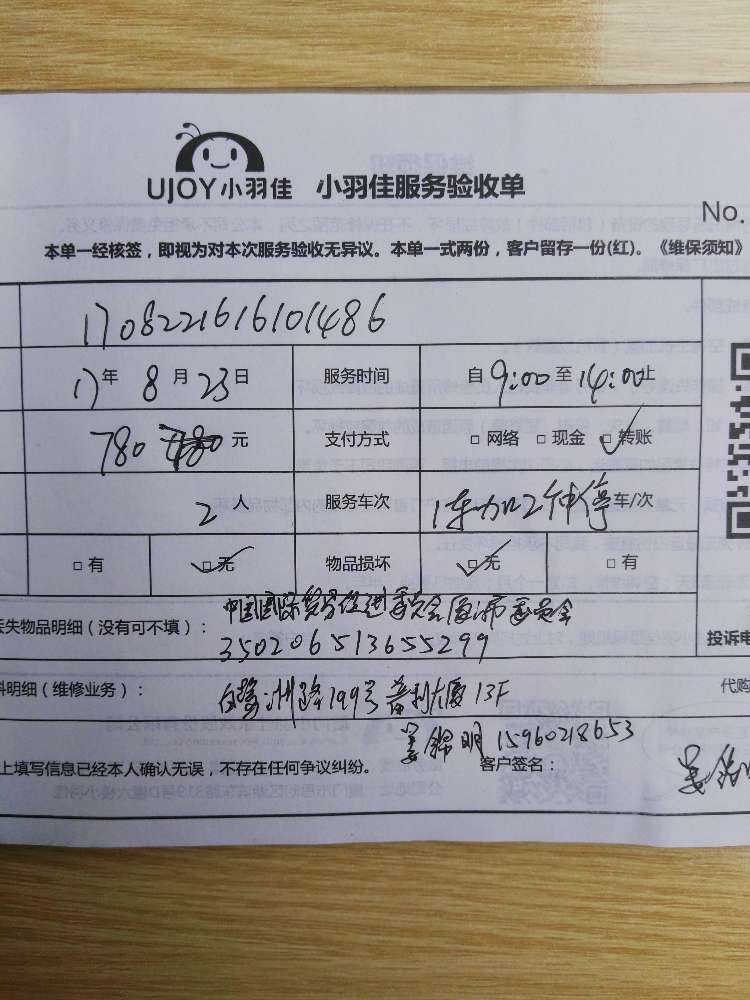 UJOY小羽佳 小羽佳服务验收单
No.
本单一经核签，即视为对本次服务验收无异议。本单一式两份，客户留存一份(红)。《维保须知》
1708221616101486
17年8月23日 服务时间 自9:00至14:00止
780元 支付方式 □网络 □现金 □转账
2人 服务车次 1车加2钟停车/次
□有 □无 物品损坏 □无 □有
丢失物品明细（没有可不填）： 中国国际贸易促进委员会厦门市委员会
350206513655299
投诉电
料明细（维修业务）： 白鹭洲路199号普利大厦13F
代购
姜锦明 15960218653
上填写信息已经本人确认无误，不存在任何争议纠纷。 客户签名： 姜锦